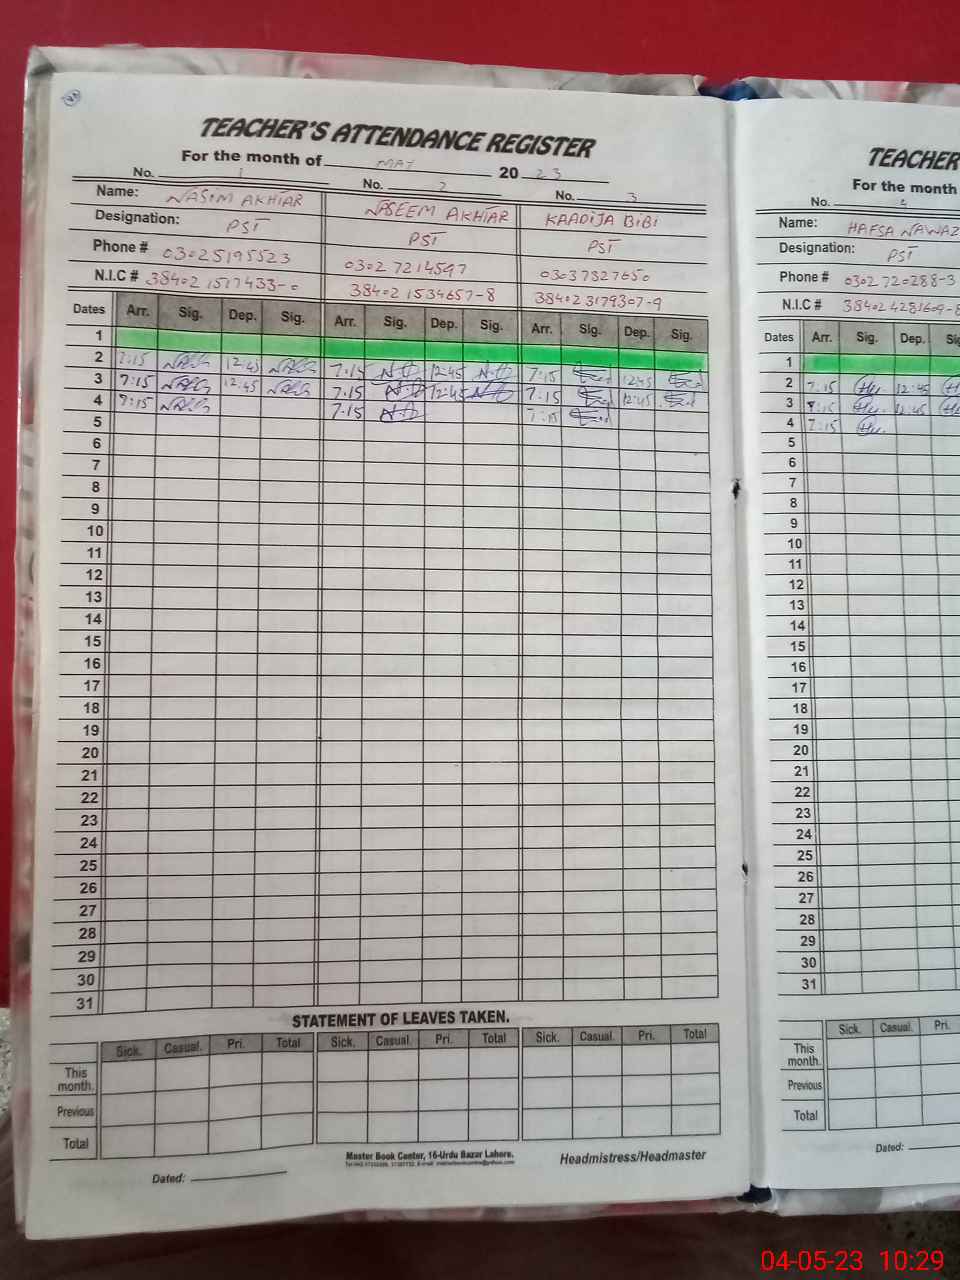 TEACHER'S ATTENDANCE REGISTER
For the month of MAY 2023
No. 1 No. 2 No. 3
Name: NASIM AKHTAR NASEEM AKHTAR KAADIJA BIBI
Designation: PST PST PST
Phone # 03025195523 03027214597 03037327650
N.I.C # 384021517433-0 384021534657-8 384023179307-9
Dates Arr. Sig. Dep. Sig. Arr. Sig. Dep. Sig. Arr. Sig. Dep. Sig.
1
2 7:15 12:45 7.15 12:45 7:15 12:45
3 7:15 12:45 7.15 12:45 7:15 12:45
4 7:15 7.15 7:15
5
6
7
8
9
10
11
12
13
14
15
16
17
18
19
20
21
22
23
24
25
26
27
28
29
30
31
STATEMENT OF LEAVES TAKEN.
Sick. Casual. Pri. Total Sick. Casual. Pri. Total Sick. Casual. Pri. Total
This month.
Previous
Total
Master Book Center, 16-Urdu Bazar Lahore.
Dated: Headmistress/Headmaster
TEACHER
For the month
No. 4
Name: HAFSA NAWAZ
Designation: PST
Phone # 0302720288-3
N.I.C # 384024281609-8
Dates Arr. Sig. Dep.
1
2 7:15 12:45
3 7:15 12:45
4 7:15
5
6
7
8
9
10
11
12
13
14
15
16
17
18
19
20
21
22
23
24
25
26
27
28
29
30
31
Sick. Casual. Pri.
This month.
Previous
Total
Dated:
04-05-23 10:29